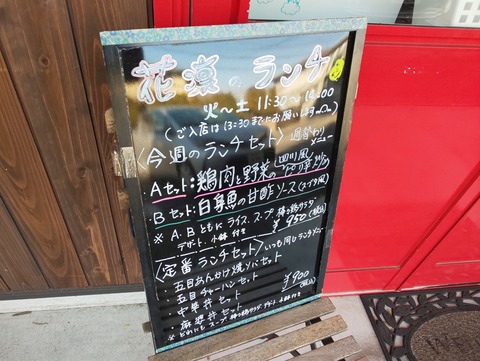 花凛のランチ
火〜土 11:30〜14:00
(ご入店は13:30までにお願いします)
〈今週のランチセット〉週替わりメニュー
Aセット:鶏肉と野菜の(四川風)
Bセット:白身魚の甘酢ソース
※A.Bともにライス、スープ
デザート、小鉢付き ¥950(税込)
〈定番ランチセット〉いつも同じランチメニュー
五目あんかけ焼ソバセット
五目チャーハンセット
中華丼セット ¥900(税込)
麻婆丼セット
※どれにもスープ 小鉢付き